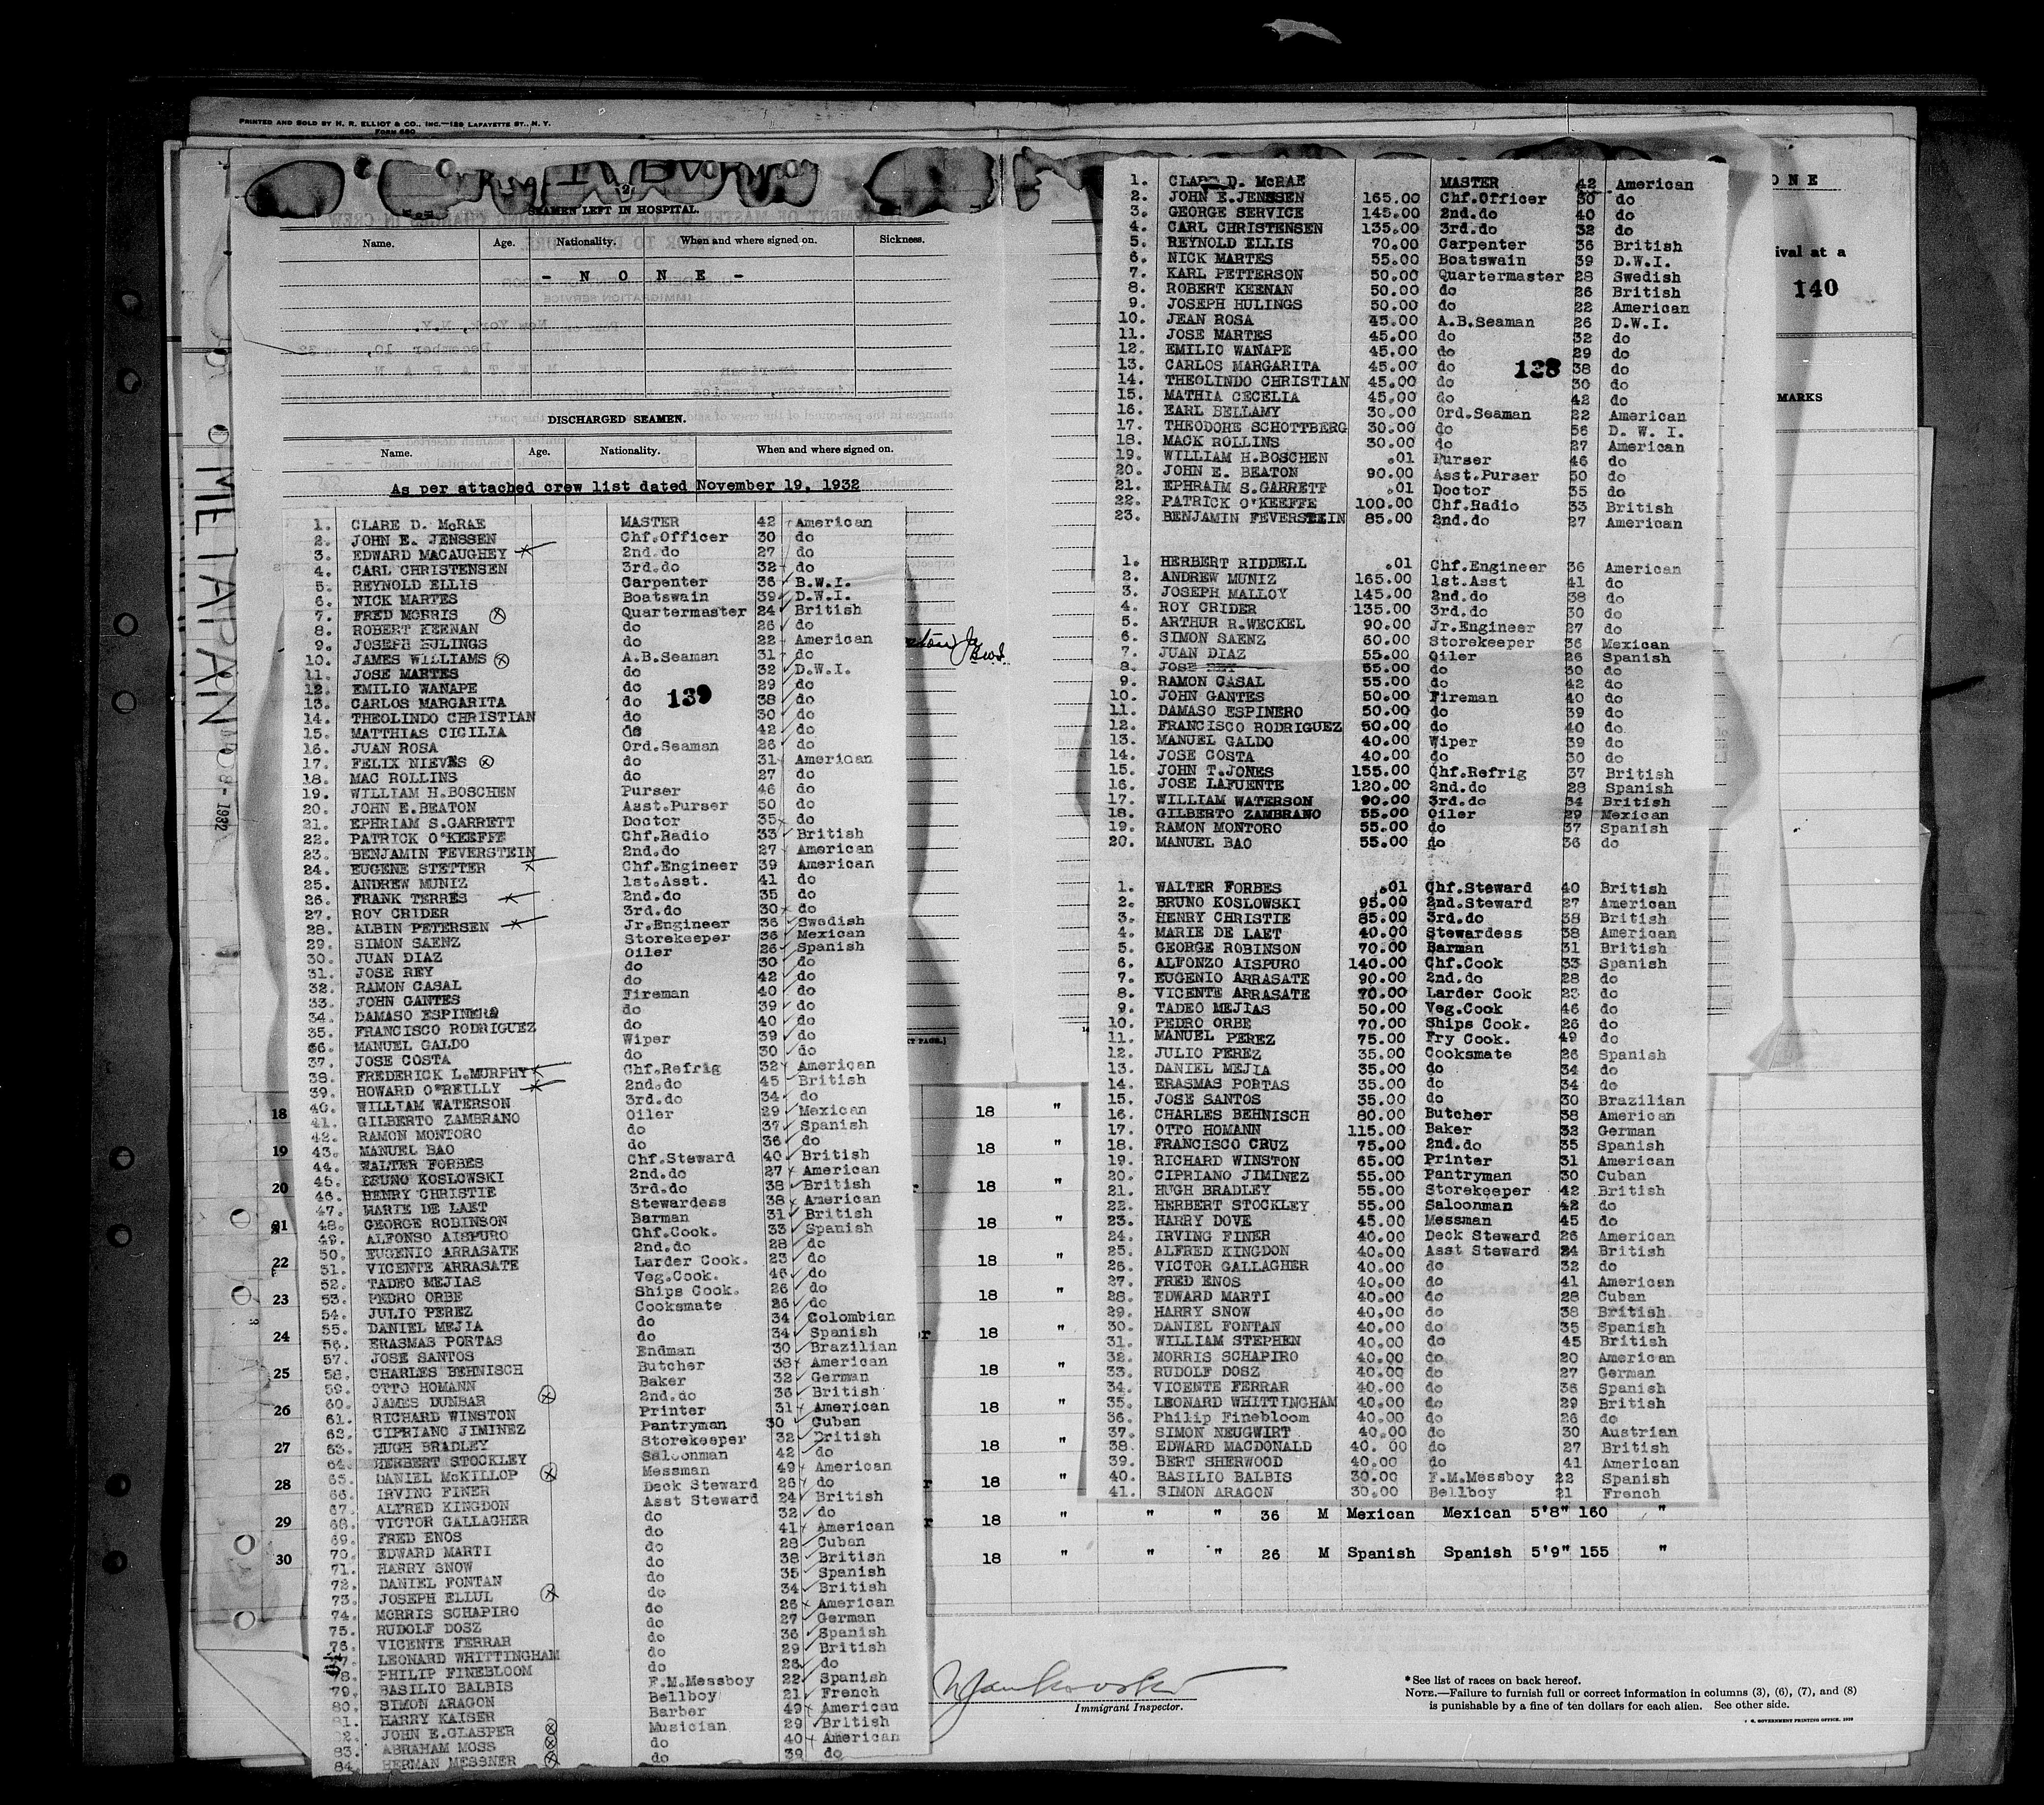 PRINTED AND SOLD BY H. R. ELLIOT & CO., INC.—129 LAFAYETTE ST., N. Y.
FORM 680
METAPAN
1932
SEAMEN LEFT IN HOSPITAL.
Name. Age. Nationality. When and where signed on. Sickness.
- N O N E -
DISCHARGED SEAMEN.
Name. Age. Nationality. When and where signed on.
As per attached crew list dated November 19, 1932
1. CLARE D. McRAE MASTER 42 American
2. JOHN E. JENSSEN Chf.Officer 30 do
3. EDWARD MACAUGHEY 2nd.do 27 do
4. CARL CHRISTENSEN 3rd.do 32 do
5. REYNOLD ELLIS Carpenter 36 B.W.I.
6. NICK MARTES Boatswain 39 D.W.I.
7. FRED MORRIS Quartermaster 24 British
8. ROBERT KEENAN do 26 do
9. JOSEPH HULINGS do 22 American
10. JAMES WILLIAMS A.B.Seaman 31 do
11. JOSE MARTES do 32 D.W.I.
12. EMILIO WANAPE do 29 do
13. CARLOS MARGARITA do 38 do
139
14. THEOLINDO CHRISTIAN do 30 do
15. MATTHIAS CICILIA do 42 do
16. JUAN ROSA Ord.Seaman 26 do
17. FELIX NIEVES do 31 American
18. MAC ROLLINS do 27 do
19. WILLIAM H.BOSCHEN Purser 46 do
20. JOHN E.BEATON Asst.Purser 50 do
21. EPHRIAM S.GARRETT Doctor 35 do
22. PATRICK O'KEEFFE Chf.Radio 33 British
23. BENJAMIN FEVERSTEIN 2nd.do 27 American
24. EUGENE STETTER Chf.Engineer 39 American
25. ANDREW MUNIZ 1st.Asst. 41 do
26. FRANK TERRES 2nd.do 35 do
27. ROY CRIDER 3rd.do 30 do
28. ALBIN PETERSEN Jr.Engineer 36 Swedish
29. SIMON SAENZ Storekeeper 36 Mexican
30. JUAN DIAZ Oiler 26 Spanish
31. JOSE REY do 30 do
32. RAMON CASAL do 42 do
33. JOHN GANTES Fireman 40 do
34. DAMASO ESPINERO do 39 do
35. FRANCISCO RODRIGUEZ do 40 do
36. MANUEL GALDO Wiper 39 do
37. JOSE COSTA do 30 do
38. FREDERICK L.MURPHY Chf.Refrig 32 American
39. HOWARD O'REILLY 2nd.do 45 British
40. WILLIAM WATERSON 3rd.do 34 do
41. GILBERTO ZAMBRANO Oiler 29 Mexican
42. RAMON MONTORO do 37 Spanish
43. MANUEL BAO do 36 do
44. WALTER FORBES Chf.Steward 40 British
45. BRUNO KOSLOWSKI 2nd.do 27 American
46. HENRY CHRISTIE 3rd.do 38 British
47. MARIE DE LAET Stewardess 38 American
48. GEORGE ROBINSON Barman 31 British
49. ALFONSO AISPURO Chf.Cook. 33 Spanish
50. EUGENIO ARRASATE 2nd.do 28 do
51. VICENTE ARRASATE Larder Cook. 23 do
52. TADEO MEJIAS Veg.Cook. 46 do
53. PEDRO ORBE Ships Cook. 26 do
54. JULIO PEREZ Cooksmate 26 do
55. DANIEL MEJIA do 34 Colombian
56. ERASMAS PORTAS do 34 Spanish
57. JOSE SANTOS Endman 30 Brazilian
58. CHARLES BEHNISCH Butcher 38 American
59. OTTO HOMANN Baker 32 German
60. JAMES DUNBAR 2nd.do 36 British
61. RICHARD WINSTON Printer 31 American
62. CIPRIANO JIMINEZ Pantryman 30 Cuban
63. HUGH BRADLEY Storekeeper 32 British
64. HERBERT STOCKLEY Saloonman 42 do
65. DANIEL McKILLOP Messman 49 American
66. IRVING FINER Deck Steward 26 do
67. ALFRED KINGDON Asst Steward 24 British
68. VICTOR GALLAGHER do 32 do
69. FRED ENOS do 41 American
70. EDWARD MARTI do 28 Cuban
71. HARRY SNOW do 38 British
72. DANIEL FONTAN do 35 Spanish
73. JOSEPH ELLUL do 34 British
74. MORRIS SCHAPIRO do 26 American
75. RUDOLF DOSZ do 27 German
76. VICENTE FERRAR do 36 Spanish
77. LEONARD WHITTINGHAM do 29 British
78. PHILIP FINEBLOOM do 26 do
79. BASILIO BALBIS F.M.Messboy 22 Spanish
80. SIMON ARAGON Bellboy 21 French
81. HARRY KAISER Barber 49 American
82. JOHN E.GLASPER Musician 29 British
83. ABRAHAM MOSS do 40 American
84. HERMAN MESSNER do 39 do
1. CLARE D. McRAE MASTER 42 American
2. JOHN E.JENSSEN 165.00 Chf.Officer 30 do
3. GEORGE SERVICE 145.00 2nd.do 40 do
4. CARL CHRISTENSEN 135.00 3rd.do 32 do
5. REYNOLD ELLIS 70.00 Carpenter 36 British
6. NICK MARTES 55.00 Boatswain 39 D.W.I.
7. KARL PETTERSON 50.00 Quartermaster 28 Swedish
8. ROBERT KEENAN 50.00 do 26 British
9. JOSEPH HULINGS 50.00 do 22 American
10. JEAN ROSA 45.00 A.B.Seaman 26 D.W.I.
11. JOSE MARTES 45.00 do 32 do
12. EMILIO WANAPE 45.00 do 29 do
13. CARLOS MARGARITA 45.00 do 38 do
138
14. THEOLINDO CHRISTIAN 45.00 do 30 do
15. MATHIA CECELIA 45.00 do 42 do
16. EARL BELLAMY 30.00 Ord.Seaman 22 American
17. THEODORE SCHOTTBERG 30.00 do 56 D. W. I.
18. MACK ROLLINS 30.00 do 27 American
19. WILLIAM H.BOSCHEN .01 Purser 46 do
20. JOHN E. BEATON 90.00 Asst.Purser 50 do
21. EPHRAIM S.GARRETT .01 Doctor 35 do
22. PATRICK O'KEEFFE 100.00 Chf.Radio 33 British
23. BENJAMIN FEVERSTEIN 85.00 2nd.do 27 American
1. HERBERT RIDDELL .01 Chf.Engineer 36 American
2. ANDREW MUNIZ 165.00 1st.Asst 41 do
3. JOSEPH MALLOY 145.00 2nd.do 38 do
4. ROY CRIDER 135.00 3rd.do 30 do
5. ARTHUR R.WECKEL 90.00 Jr.Engineer 27 do
6. SIMON SAENZ 60.00 Storekeeper 36 Mexican
7. JUAN DIAZ 55.00 Oiler 26 Spanish
8. JOSE REY 55.00 do 30 do
9. RAMON CASAL 55.00 do 42 do
10. JOHN GANTES 50.00 Fireman 40 do
11. DAMASO ESPINERO 50.00 do 39 do
12. FRANCISCO RODRIGUEZ 50.00 do 40 do
13. MANUEL GALDO 40.00 Wiper 39 do
14. JOSE COSTA 40.00 do 30 do
15. JOHN T.JONES 155.00 Chf.Refrig 37 British
16. JOSE LAFUENTE 120.00 2nd.do 28 Spanish
17. WILLIAM WATERSON 90.00 3rd.do 34 British
18. GILBERTO ZAMBRANO 55.00 Oiler 29 Mexican
19. RAMON MONTORO 55.00 do 37 Spanish
20. MANUEL BAO 55.00 do 36 do
1. WALTER FORBES .01 Chf.Steward 40 British
2. BRUNO KOSLOWSKI 95.00 2nd.Steward 27 American
3. HENRY CHRISTIE 85.00 3rd.do 38 British
4. MARIE DE LAET 40.00 Stewardess 38 American
5. GEORGE ROBINSON 70.00 Barman 31 British
6. ALFONZO AISPURO 140.00 Chf.Cook 33 Spanish
7. EUGENIO ARRASATE 90.00 2nd.do 28 do
8. VICENTE ARRASATE 70.00 Larder Cook 23 do
9. TADEO MEJIAS 50.00 Veg.Cook 46 do
10. PEDRO ORBE 70.00 Ships Cook. 26 do
11. MANUEL PEREZ 75.00 Fry Cook. 49 do
12. JULIO PEREZ 35.00 Cooksmate 26 Spanish
13. DANIEL MEJIA 35.00 do 34 do
14. ERASMAS PORTAS 35.00 do 34 do
15. JOSE SANTOS 35.00 do 30 Brazilian
16. CHARLES BEHNISCH 80.00 Butcher 38 American
17. OTTO HOMANN 115.00 Baker 32 German
18. FRANCISCO CRUZ 75.00 2nd.do 35 Spanish
19. RICHARD WINSTON 65.00 Printer 31 American
20. CIPRIANO JIMINEZ 55.00 Pantryman 30 Cuban
21. HUGH BRADLEY 55.00 Storekeeper 42 British
22. HERBERT STOCKLEY 55.00 Saloonman 42 do
23. HARRY DOVE 45.00 Messman 45 do
24. IRVING FINER 40.00 Deck Steward 26 American
25. ALFRED KINGDON 40.00 Asst Steward 24 British
26. VICTOR GALLAGHER 40.00 do 32 do
27. FRED ENOS 40.00 do 41 American
28. EDWARD MARTI 40.00 do 28 Cuban
29. HARRY SNOW 40.00 do 38 British
30. DANIEL FONTAN 40.00 do 35 Spanish
31. WILLIAM STEPHEN 40.00 do 45 British
32. MORRIS SCHAPIRO 40.00 do 20 American
33. RUDOLF DOSZ 40.00 do 27 German
34. VICENTE FERRAR 40.00 do 36 Spanish
35. LEONARD WHITTINGHAM 40.00 do 29 British
36. Philip Finebloom 40.00 do 26 do
37. SIMON NEUGWIRT 40.00 do 30 Austrian
38. EDWARD MACDONALD 40. 00 do 27 British
39. BERT SHERWOOD 40.00 do 41 American
40. BASILIO BALBIS 30.00 F.M.Messboy 22 Spanish
41. SIMON ARAGON 30.00 Bellboy 21 French
O N E
ival at a
140
MARKS
18 18 "
19 18 "
20 18 "
21 18 "
22 18 "
23 18 "
24 18 "
25 18 "
26 18 "
27 18 "
28 18 "
29 18 " " " 36 M Mexican Mexican 5'8" 160 "
30 18 " " " 26 M Spanish Spanish 5'9" 155 "
Immigrant Inspector.
*See list of races on back hereof.
NOTE.—Failure to furnish full or correct information in columns (3), (6), (7), and (8)
is punishable by a fine of ten dollars for each alien. See other side.